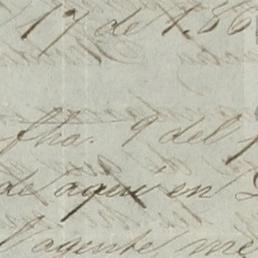 17 de 1.86
fha. 9 del p
de aqui en
l'agente me